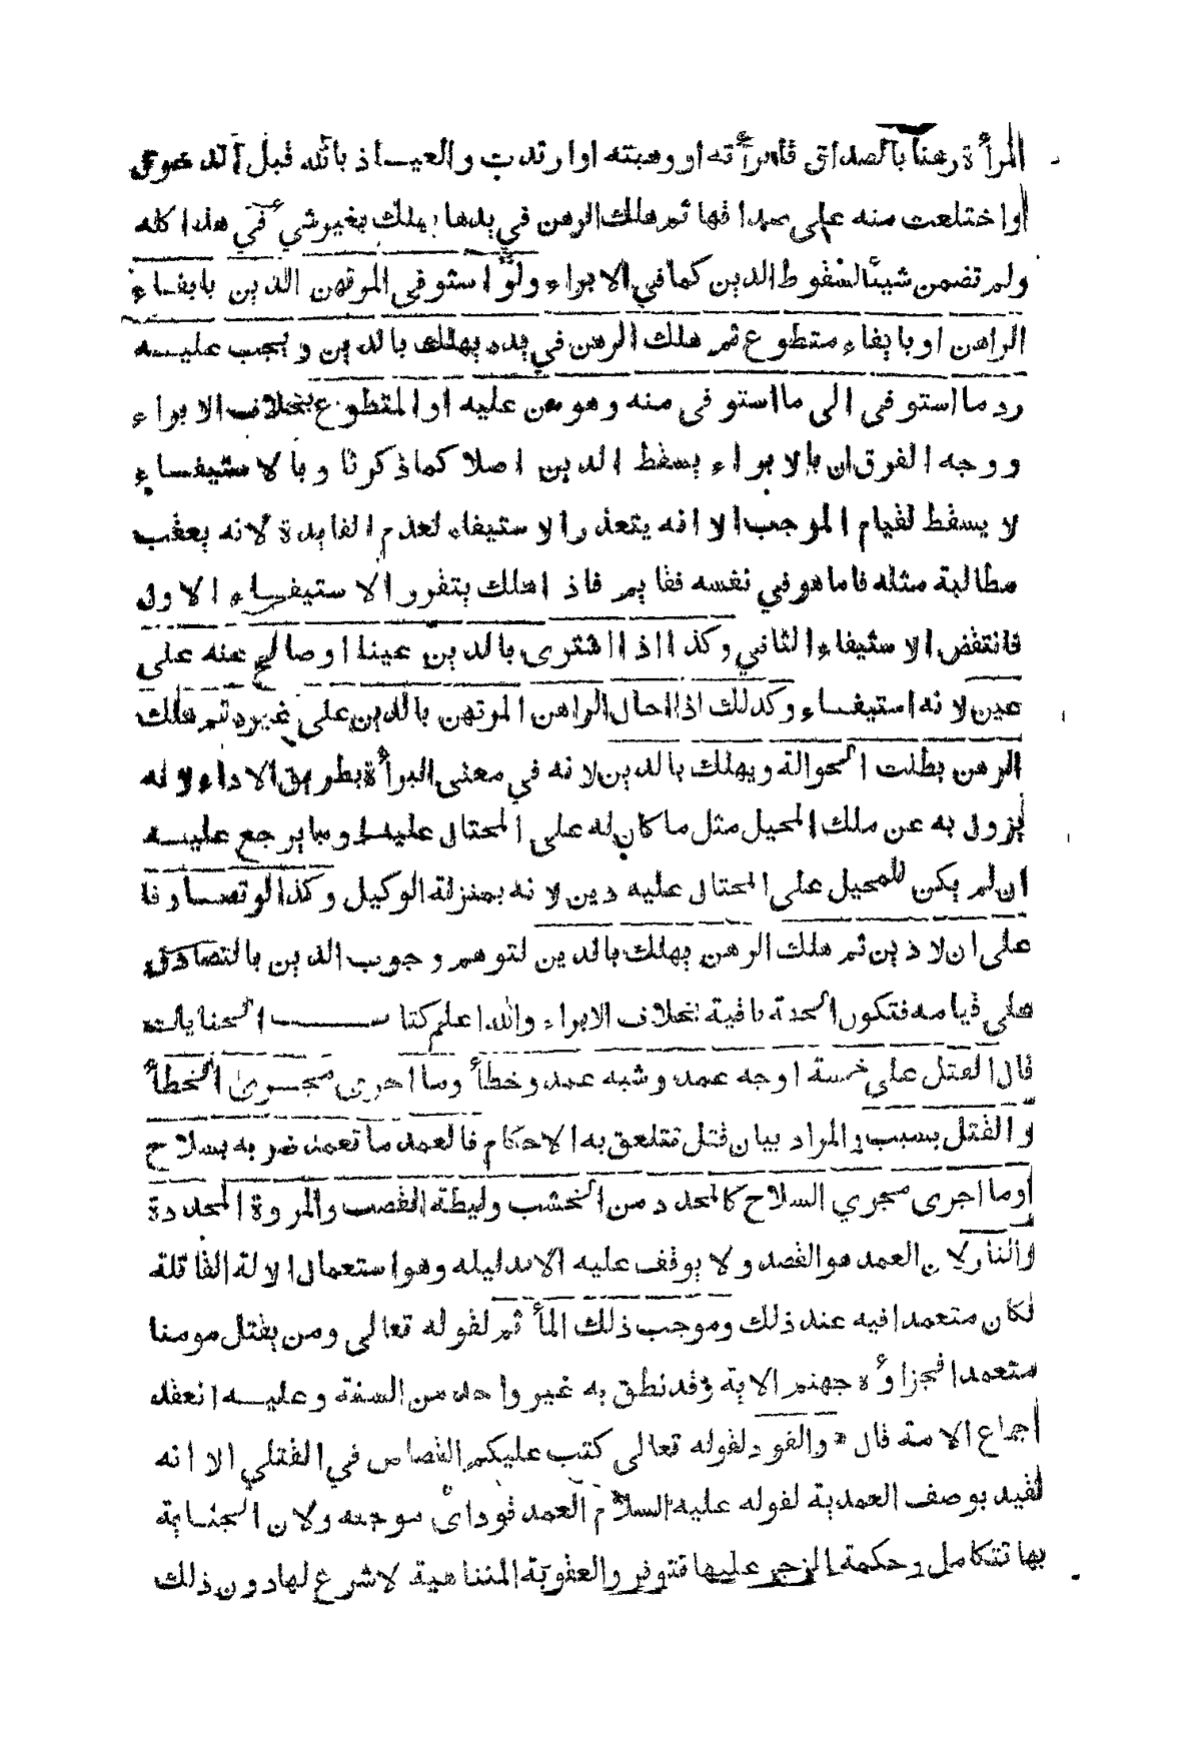 المرأة رهنا بالصداق فابرأته او وهبته او ارتدت والعياذ بالله قبل الدخول
او اختلعت منه على صداقها ثم هلك الرهن في يدها يهلك بغير شيء في هذا كله
ولم تضمن شيئا لسقوط الدين كما في الابراء ولو استوفى المرتهن الدين بايفاء
الراهن او بايفاء متطوع ثم هلك الرهن في يده يهلك بالدين ويجب عليه
رد ما استوفى الى ما استوفى منه وهو من عليه او المتطوع بخلاف الابراء
ووجه الفرق ان بالابراء يسقط الدين اصلا كما ذكرنا وبالاستيفاء
لا يسقط لقيام الموجب الا انه يتعذر الاستيفاء لعدم الفايدة لانه يعقب
مطالبة مثله فاما هو في نفسه فقايم فاذا هلك يتقرر الاستيفاء الاول
فانتقض الاستيفاء الثاني وكذا اذا اشترى بالدين عينا او صالح عنه على
عين لانه استيفاء وكذلك اذا احال الراهن المرتهن بالدين على غيره ثم هلك
الرهن بطلت الحوالة ويهلك بالدين لانه في معنى البرأة بطريق الاداء لانه
يزول به عن ملك المحيل مثل ما كان له على المحتال عليه او ما يرجع عليه
ان لم يكن للمحيل على المحتال عليه دين لانه بمنزلة الوكيل وكذا لو تصادقا
على ان لا دين ثم هلك الرهن يهلك بالدين لتوهم وجوب الدين بالتصادق
على قيامه فتكون الجهة باقية بخلاف الابراء والله اعلم كتاب الجنايات
قال القتل على خمسة اوجه عمد وشبه عمد وخطأ وما اجرى مجرى الخطأ
والقتل بسبب والمراد بيان قتل تتعلق به الاحكام فالعمد ما تعمد ضربه بسلاح
او ما اجرى مجرى السلاح كالمحدد من الخشب وليطة القصب والمروة المحددة
والنار لان العمد هو القصد ولا يوقف عليه الا بدليله وهو استعمال الالة القاتلة
لكان متعمدا فيه عند ذلك وموجب ذلك المأثم لقوله تعالى ومن يقتل مومنا
متعمدا فجزاؤه جهنم الاية وقد نطق به غير واحد من السنة وعليه انعقد
اجماع الامة قال والقود لقوله تعالى كتب عليكم القصاص في القتلى الا انه
تقيد بوصف العمدية لقوله عليه السلام العمد قود اى موجبه ولان الجناية
بها تتكامل وحكمة الزجر عليها تتوفر والعقوبة المتناهية لا شرع لها دون ذلك